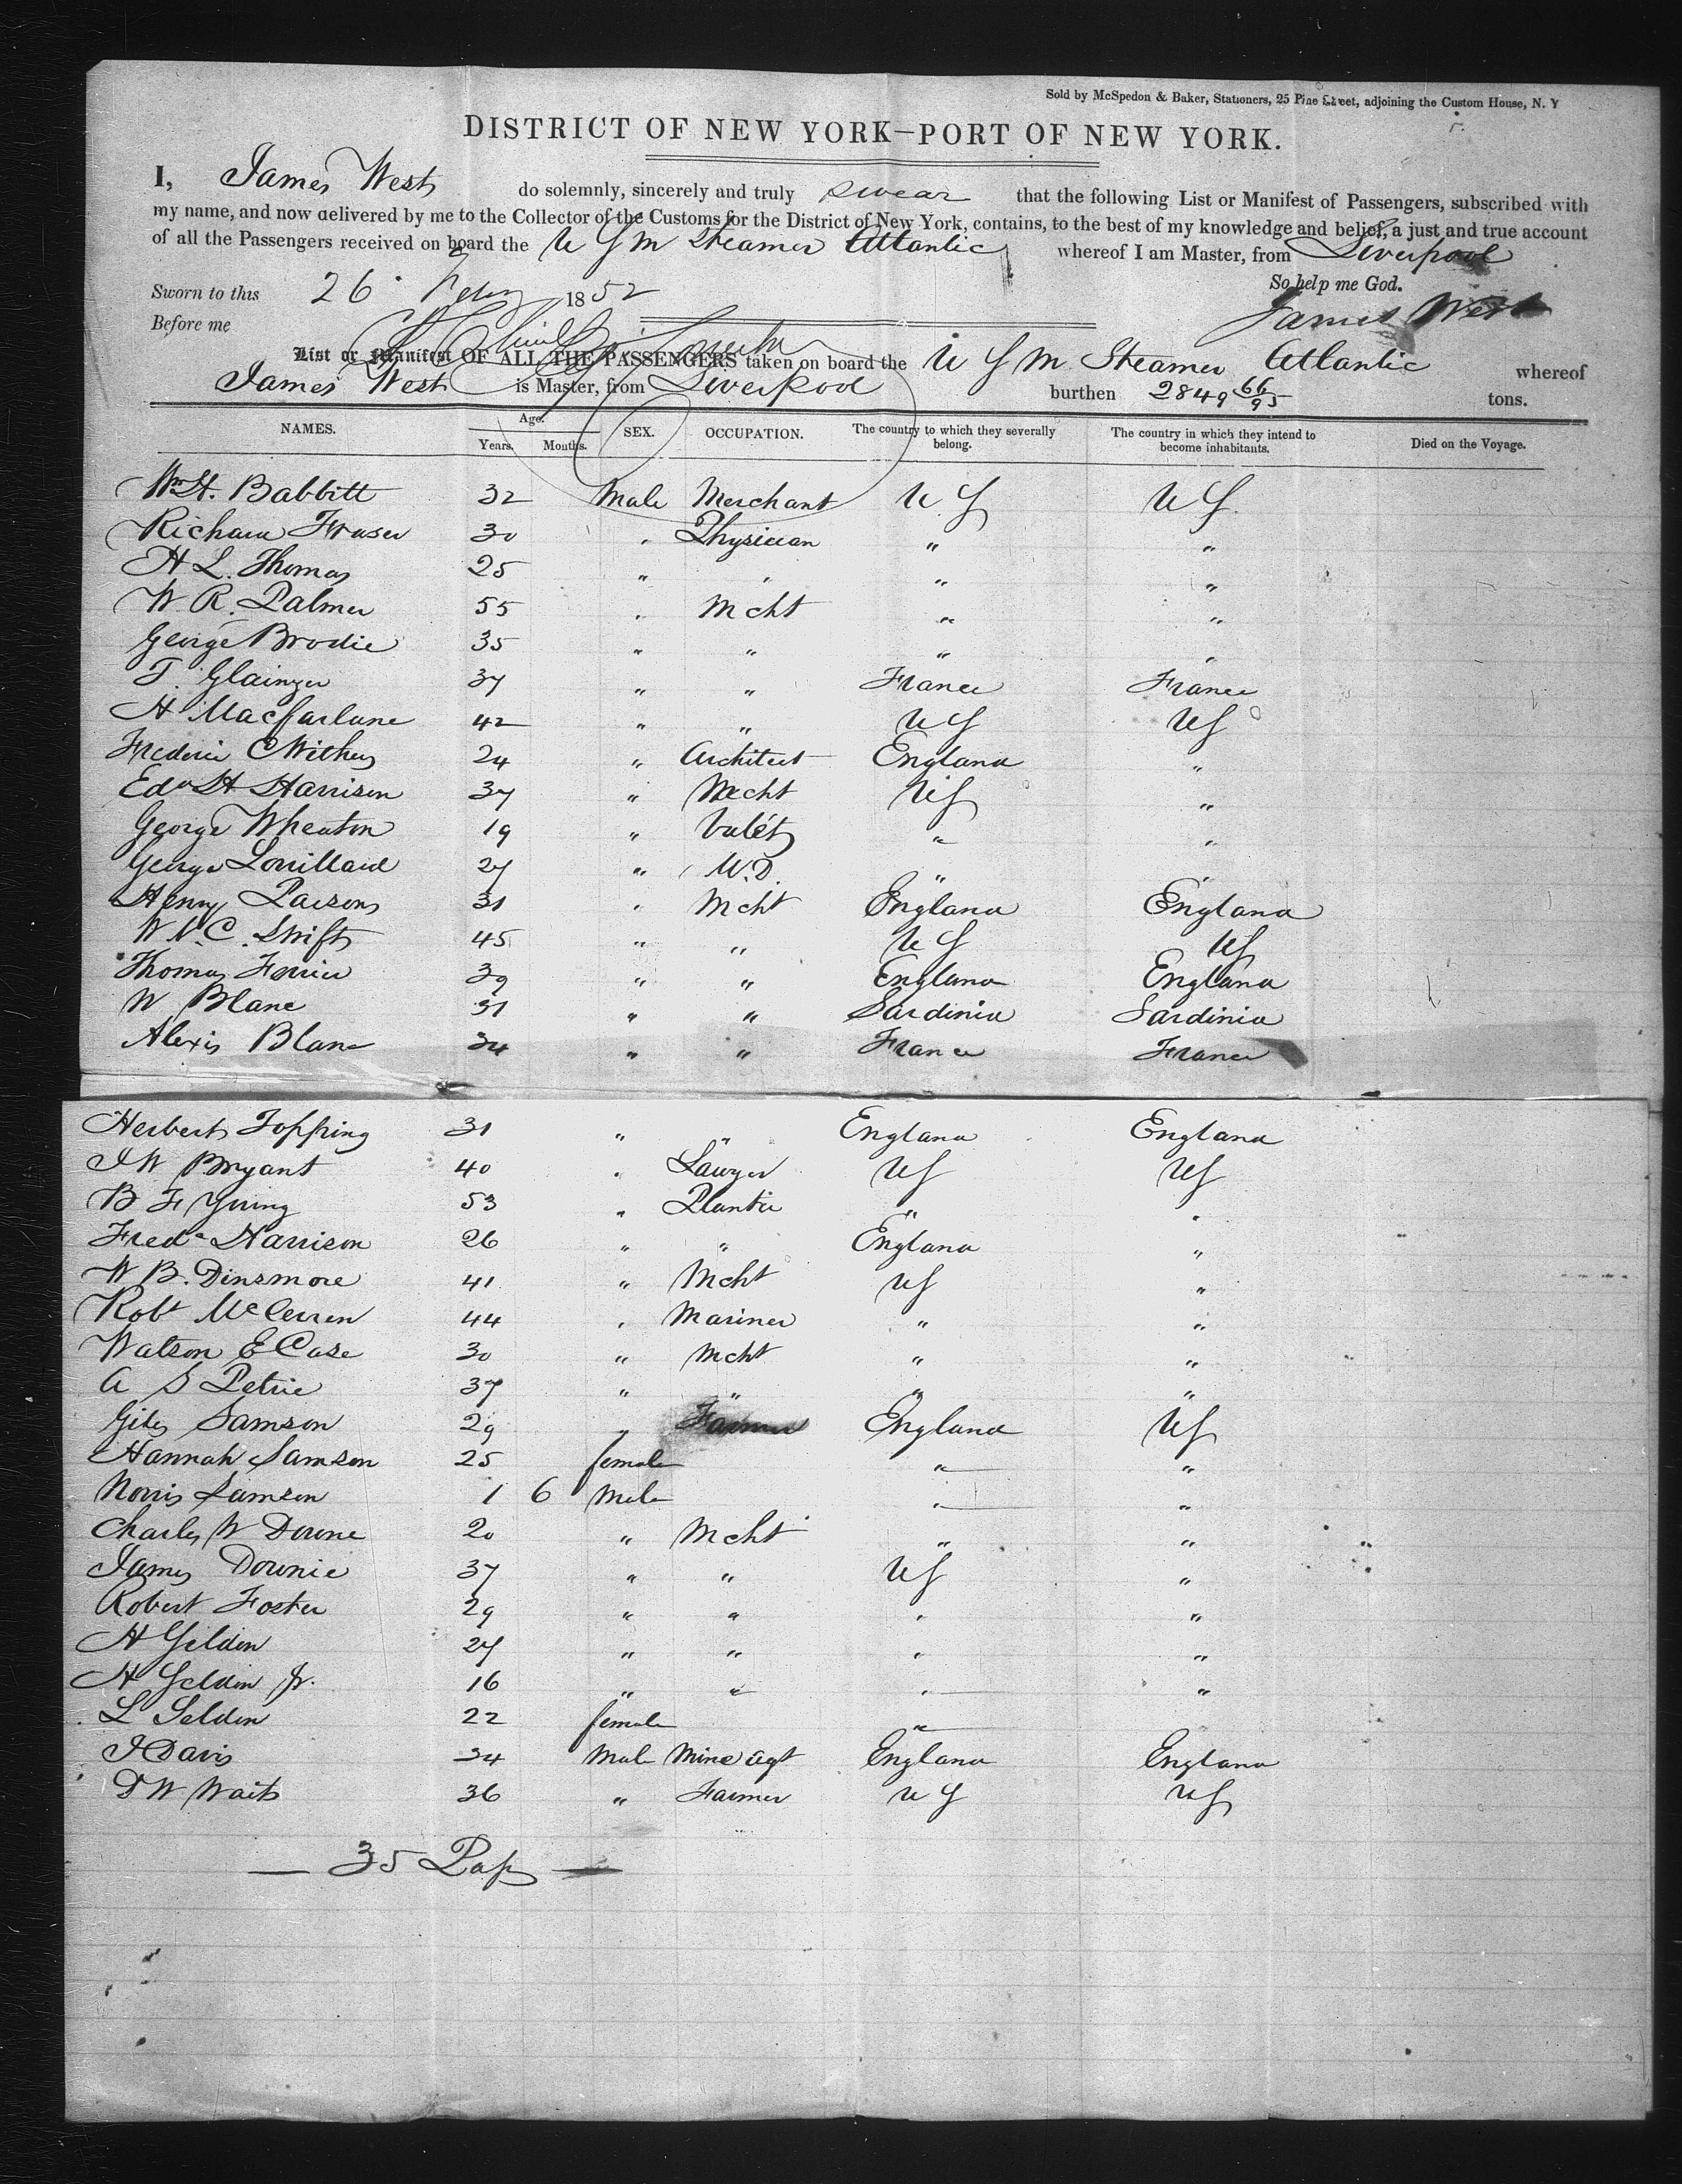 Sold by McSpedon & Baker, Stationers, 25 Pine Street, adjoining the Custom House, N. Y
DISTRICT OF NEW YORK—PORT OF NEW YORK.
I, James West do solemnly, sincerely and truly swear that the following List or Manifest of Passengers, subscribed with
my name, and now delivered by me to the Collector of the Customs for the District of New York, contains, to the best of my knowledge and belief, a just and true account
of all the Passengers received on board the U S M Steamer Atlantic whereof I am Master, from Liverpool
So help me God.
Sworn to this 26 Feby 1852
James West
Before me
List or Manifest OF ALL THE PASSENGERS taken on board the U S M Steamer Atlantic whereof
James West is Master, from Liverpool burthen 2849 66/95 tons.
NAMES. Age. Years. Months. SEX. OCCUPATION. The country to which they severally belong. The country in which they intend to become inhabitants. Died on the Voyage.
Wm H. Babbitt 32 Male Merchant U S U S
Richard Fraser 30 " Physician " "
H L. Thomas 25 " " " "
W R. Palmer 55 " Mcht " "
George Brodie 35 " " " "
T. Glainzer 37 " " France France
H Macfarlane 42 " " U S US
Frederic C Withers 24 " Architect England "
Edw H Harrison 37 " Mcht US "
George Wheaton 19 " Valet " "
George Lorillard 27 " M.D " "
Henry Parsons 31 " Mcht England England
W. C. Swift 45 " " U S US
Thomas Ferrier 39 " " England England
W Blanc 31 " " Sardinia Sardinia
Alexis Blanc 34 " " France France
Herbert Topping 31 " " England England
J W Bryant 40 " Lawyer US US
B F Young 53 " Planter " "
Fredk Harrison 26 " " England "
W B. Dinsmore 41 " Mcht US "
Robt 44 " Mariner " "
Watson E Case 30 " Mcht " "
A S Petrie 37 " " " "
Giles Samson 29 " Farmer England US
Hannah Samson 25 female " "
Norris Samson 1 6 Male " "
Charles W 20 " Mcht " "
James Downie 37 " " US "
Robert Foster 29 " " " "
H Selden 27 " " " "
H Selden Jr. 16 " " " "
L Selden 22 female "
J Davis 34 Male Mine agt England England
D W Waits 36 " Farmer U S US
— 35 Pass —